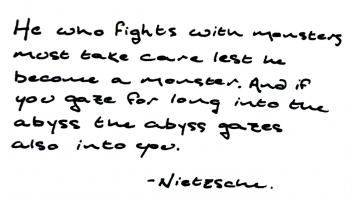 He who fights with monsters
must take care lest he
become a monster. And if
you gaze for long into the
abyss the abyss gazes
also into you.
-Nietzsche.